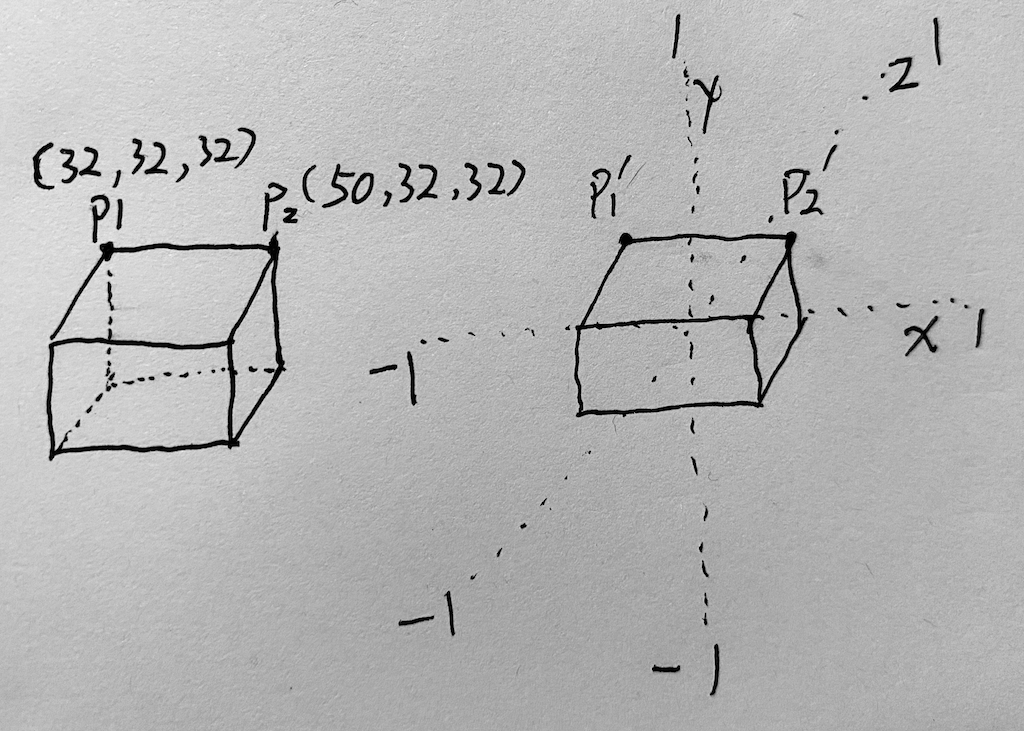 (32,32,32)
P1
P2 (50,32,32)
1
Y
Z 1
P1'
P2'
-1
X 1
-1
-1